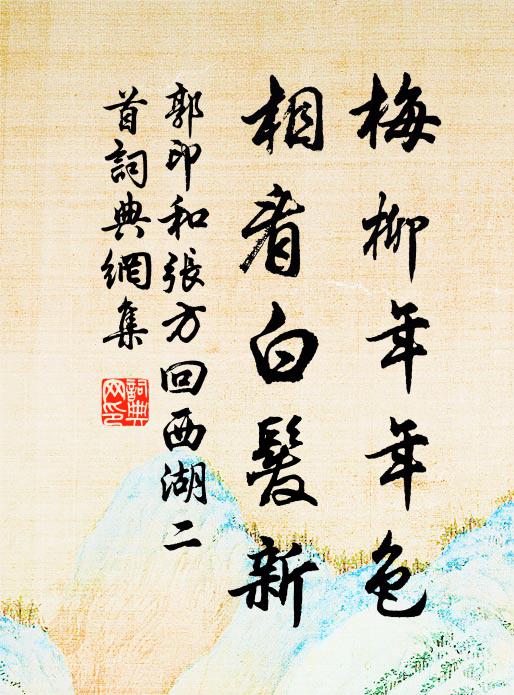 梅柳年年色
相看白髮新
郭印和張方回西湖二
首詞典網集
詞典
網印